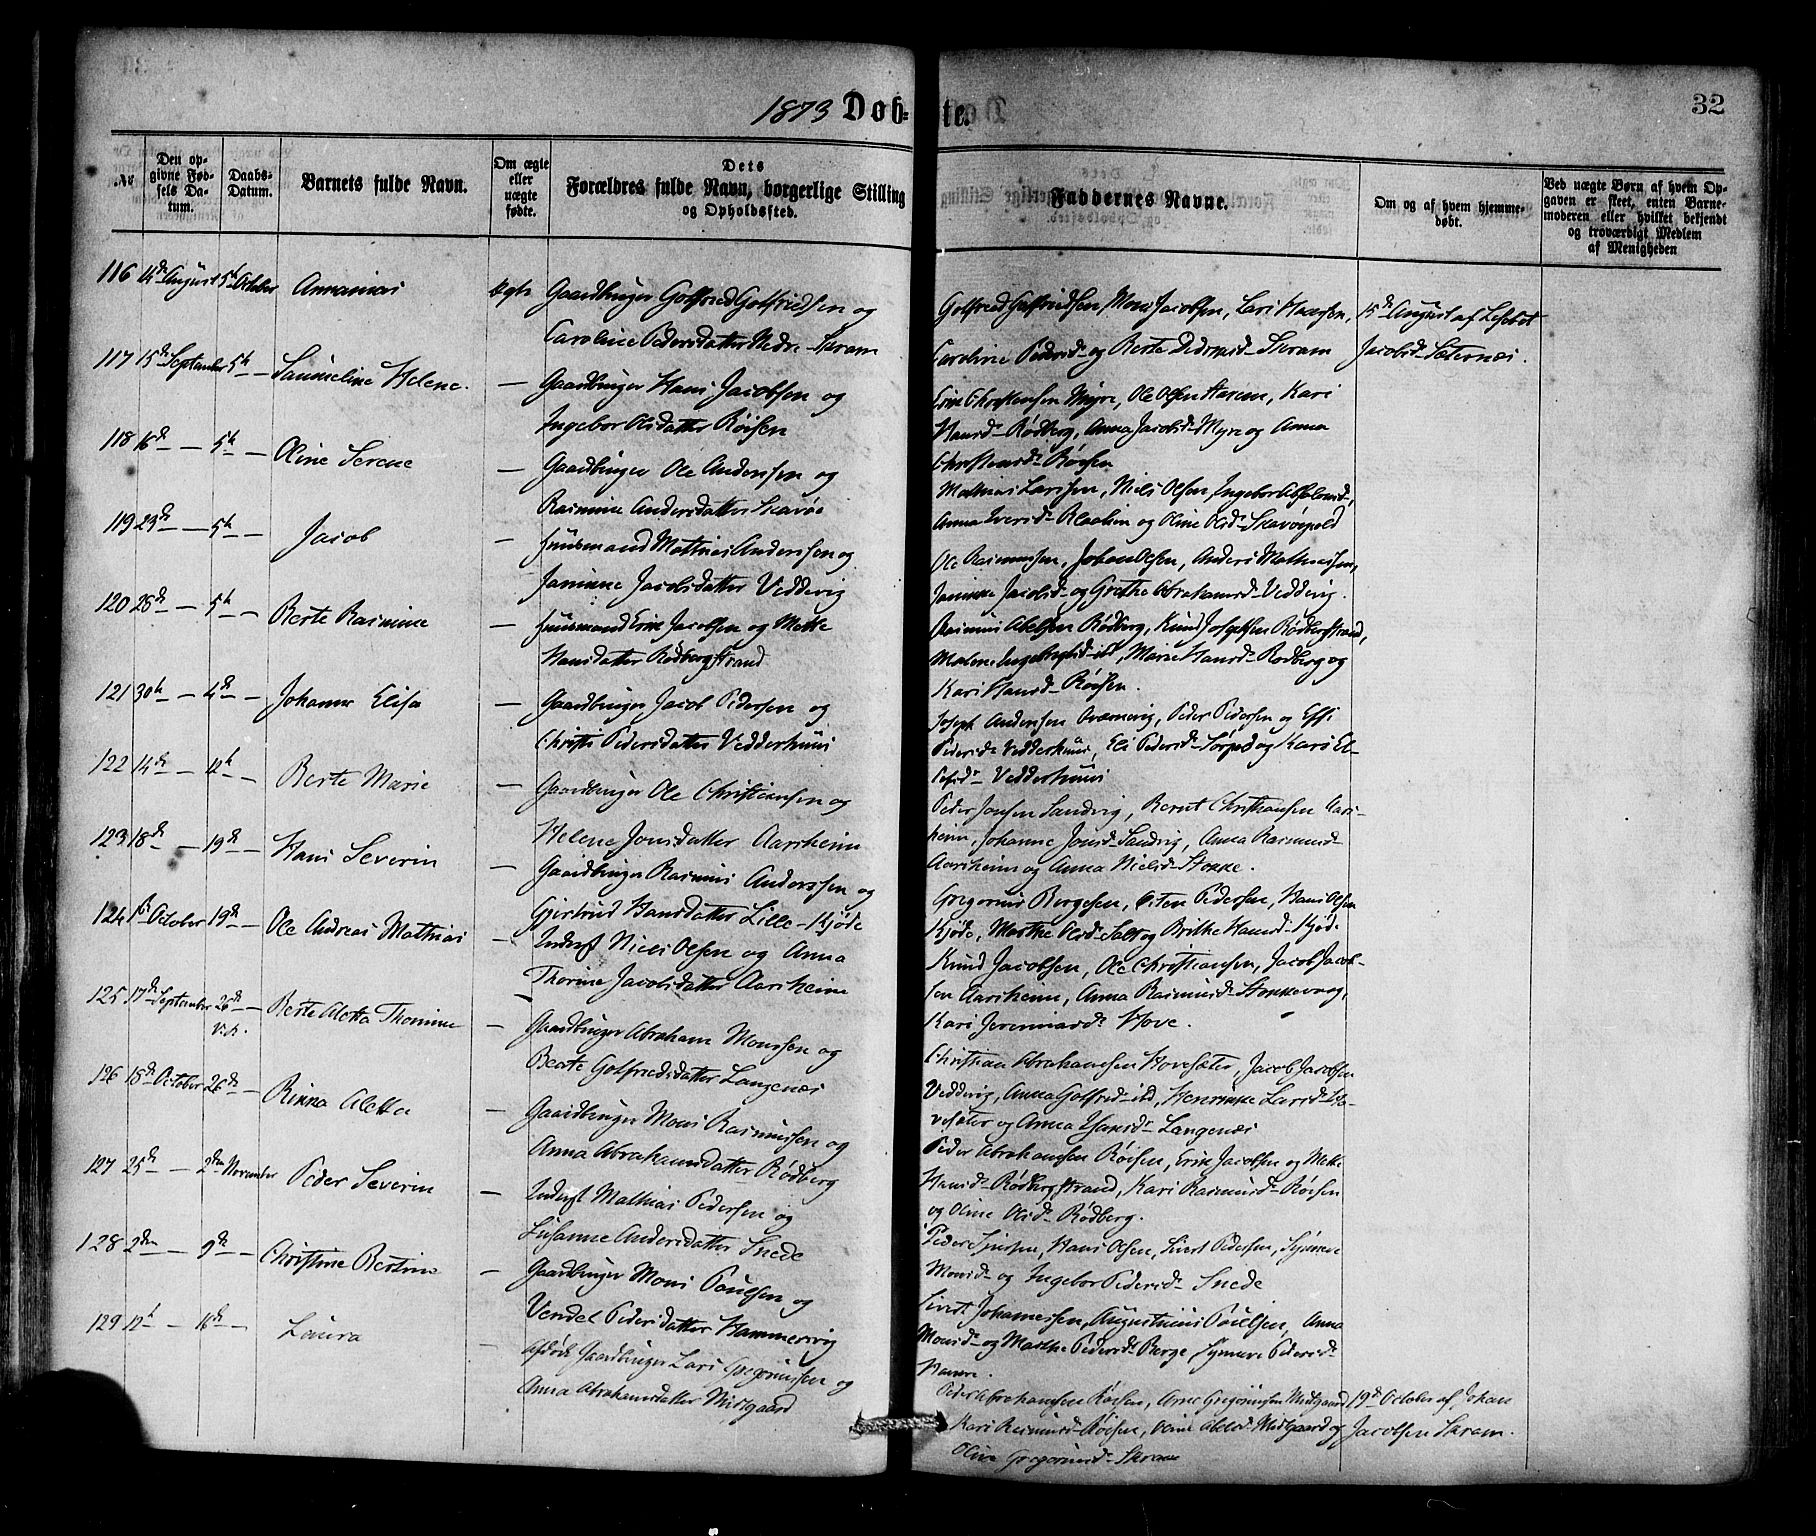 1873 Døb-te.
32
№
Den op-
givne Fød-
sels Da-
tum.
Daabs-
Datum.
Barnets fulde Navn.
Om ægte
eller
uægte
fødte.
Dets
Forældres fulde Navn, borgerlige Stilling
og Opholdssted.
Faddernes Navne.
Om og af hvem hjemme-
døbt.
Ved uægte Børn af hvem Op-
gaven er skeet, enten Barne-
moderen eller hvilket bekjendt
og troværdigt Medlem
af Menigheden
116 14de August 5te October Annanias ægte Gaardbruger Golfred Golfredsen og
Caroline Pedersdatter Nedre-Skram
Golfred Golfredsen, Mons Jacobsen, Lars Hansen,
Caroline Pedersd. og Berte Pedersd. Skram
15de August af Lisebet
Jacobsd. Sæternæs.
117 15de September 5te — Saumeline Helene. — Gaardbruger Hans Jacobsen og
Ingebor Olsdatter Røisen
Erik Christensen Myre, Ole Olsen Harem, Kari
Hansd. Rødberg, Anna Jacobsd. Myre og Anna
Christensd. Røisen
118 16de — 5te — Oline Serene — Gaardbruger Ole Anderssen og
Rasmine Andersdatter Skavøe
Mathias Larssen, Niels Olsen, Ingebor Absolonsd.,
Anna Iversd. Blaalim og Oline Olsd. Skavøepold
119 23de — 5te — Jacob — Huusmand Mathias Anderssen og
Janinne Jacobsdatter Vedderig
Ole Rasmussen, Johan Olsen, Anders Mathiassen,
Janikke Jacobsd. og Grethe Abrahamsd. Vedderig.
120 28de — 5te — Berte Rasmine — Huusmand Erik Jacobsen og Mette
Hansdatter Rødbergstrand
Rasmus Abelsen Rødberg, Knud Josephsen Rødbergstrand,
Malene Ingebregtsd. ibd, Marie Hansd. Rødberg og
Kari Hansd. Røisen.
121 30te — 4de — Johanne Elisa — Gaardbruger Jacob Pedersen og
Christi Pedersdatter Vedderhuus
Joseph Andersen Qvamevig, Peder Pedersen og Effi
Pedersd. Vedderhuus, Eli Pedersd. Sørpod og Kari El-
Pedsd. Vedderhuus
122 14de — 12te — Berte Marie — Gaardbruger Ole Christiansen og
Helene Jonsdatter Aarsheim
Peder Jonsen Sandvig, Bernt Christiansen Aars-
heim, Johanne Jonsd. Sandvig, Anna Rasmusd.
Aarsheim og Anna Nielsd. Stokke.
123 18de — 19de — Hans Severin — Gaardbruger Rasmus Anderssen og
Gjertrud Hansdatter Lille-Kjøde
Gregorius Børgesen, Sten Pedersen, Hans Olsen
Kjøde, Marthe Olsd. Salt og Brithe Hansd. Kjøde
124 1ste October 19de — Ole Andreas Mathias — Inderst Niels Olsen og Anna
Thorine Jacobsdatter Aarsheim
Knud Jacobsen, Ole Christiansen, Jacob Jacob-
sen Aarsheim, Anna Rasmusd. Stokkevaag,
Kari Jeremiasd. Hove.
125 17de September 26de — Berte Aletta Thomine — Gaardbruger Abraham Monssen og
Beate Golfredsdatter Langenæs
Christian Abrahamsen Hovesæter, Jacob Jacobsen
Vedderig, Anna Golfredsd. ibd, Henrikke Larsd. Ho-
vesæter og Anna Hansd. Langenæs
126 18de October 26de — Rinna Aletta — Gaardbruger Mons Rasmussen og
Anna Abrahamsdatter Rødberg
Peder Abrahamsen Røisen, Erik Jacobsen og Mette
Hansd. Rødbergstrand, Kari Rasmusd. Røisen
og Oline Olsd. Rødberg.
127 25de — 2den November Peder Severin — Inderst Mathias Pedersen og
Susanne Andersdatter Snede
Peder Sjursen, Hans Olsen, Sivert Pedersen, Synneve
Monsd. og Ingebor Pedersd. Snede
128 2den — 9de — Christine Bertine — Gaardbruger Mons Paulsen og
Vendel Pedersdatter Hammersvig
Sivert Johannessen, Augustinus Paulsen, Anna
Monsd. og Marthe Pedersd. Berge, Synneve Pedersd.
129 12te — 16de — Laura — Afdøde Gaardbruger Lars Gregorussen og
Anna Abrahamsdatter Midtgaard
Peder Abrahamsen Røisen, Arne Gregoriussen Midtgaard
Kari Rasmusd. Røisen, Oline Abelsd. Midtgaard og
Oline Gregoriusd. Skram
19de October af Johan
Jacobsen Skram.